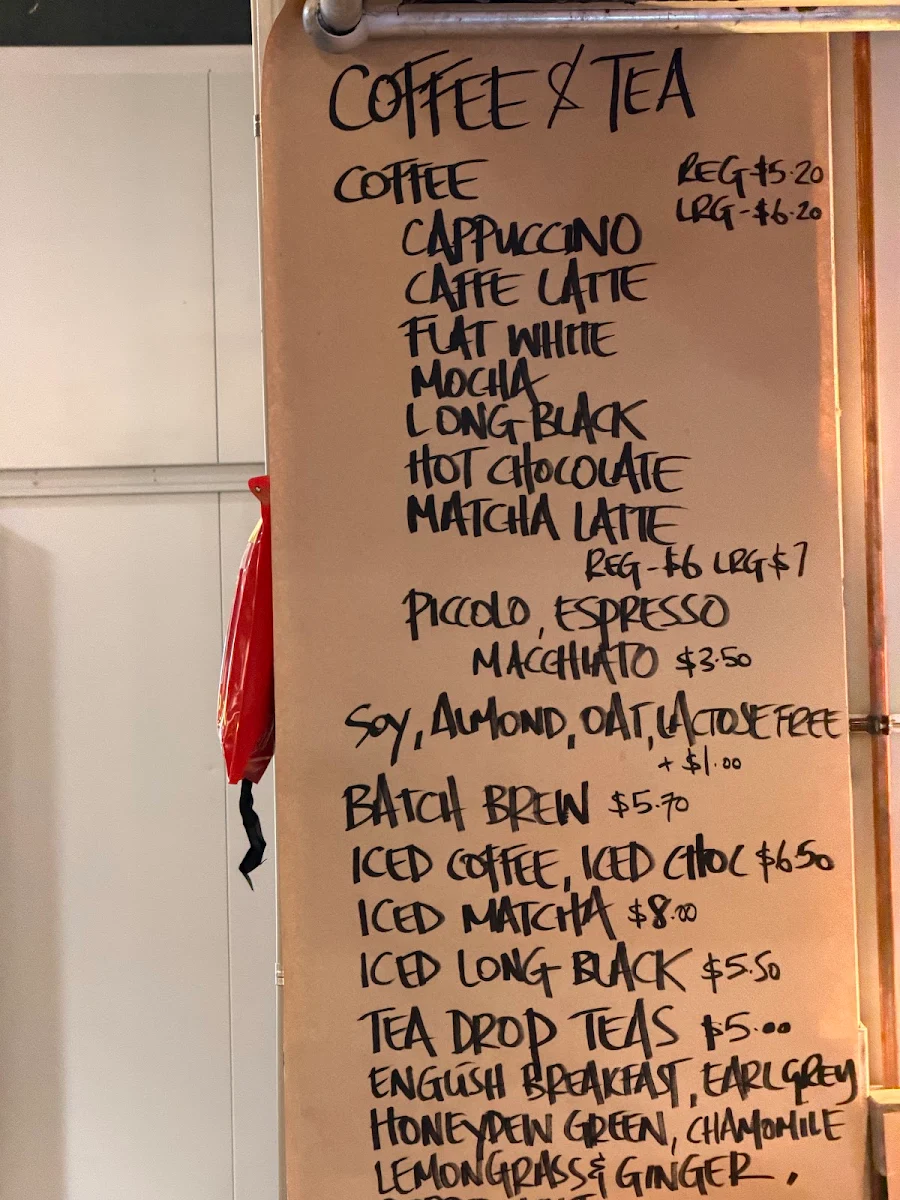 COFFEE & TEA
COFFEE REG $5.20
LRG - $6.20
CAPPUCCINO
CAFFE LATTE
FLAT WHITE
MOCHA
LONG BLACK
HOT CHOCOLATE
MATCHA LATTE
REG - $6 LRG $7
PICCOLO, ESPRESSO
MACCHIATO $3.50
SOY, ALMOND, OAT, LACTOSE FREE
+ $1.00
BATCH BREW $5.70
ICED COFFEE, ICED CHOC $6.50
ICED MATCHA $8.00
ICED LONG BLACK $5.50
TEA DROP TEAS $5.00
ENGLISH BREAKFAST, EARL GREY
HONEYDEW GREEN, CHAMOMILE
LEMONGRASS & GINGER,